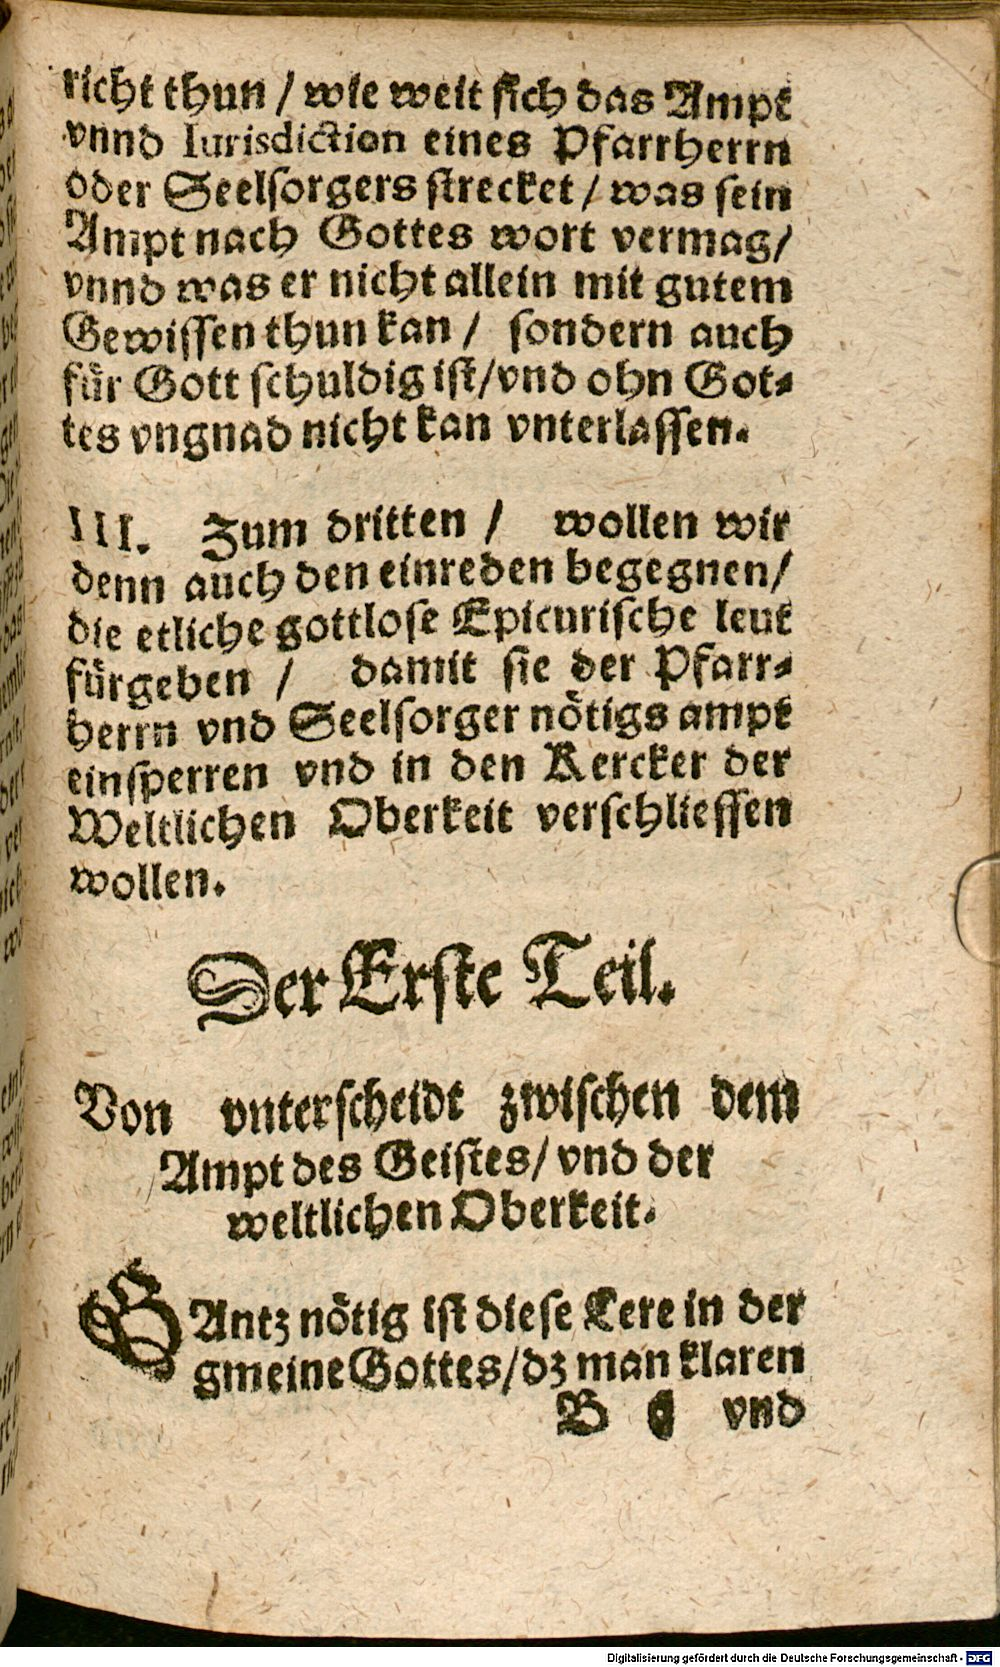 richt thun / wie weit sich das Ampt
vnnd Iurisdiction eines Pfarrherrn
oder Seelsorgers strecket / was sein
Ampt nach Gottes wort vermag /
vnnd was er nicht allein mit gutem
Gewissen thun kan / sondern auch
für Gott schuldig ist / vnd ohn Got-
tes vngnad nicht kan vnterlassen.
III. Zum dritten / wollen wir
denn auch den einreden begegnen /
die etliche gottlose Epicurische leut
fürgeben / damit sie der Pfarr-
herrn vnd Seelsorger nötigs ampt
einsperren vnd in den Kercker der
Weltlichen Oberkeit verschliessen
wollen.
Der Erste Teil.
Von vnterscheidt zwischen dem
Ampt des Geistes / vnd der
weltlichen Oberkeit.
GAntz nötig ist diese Lere in der
gmeine Gottes / dz man klaren
B vnd
Digitalisierung gefördert durch die Deutsche Forschungsgemeinschaft - DFG